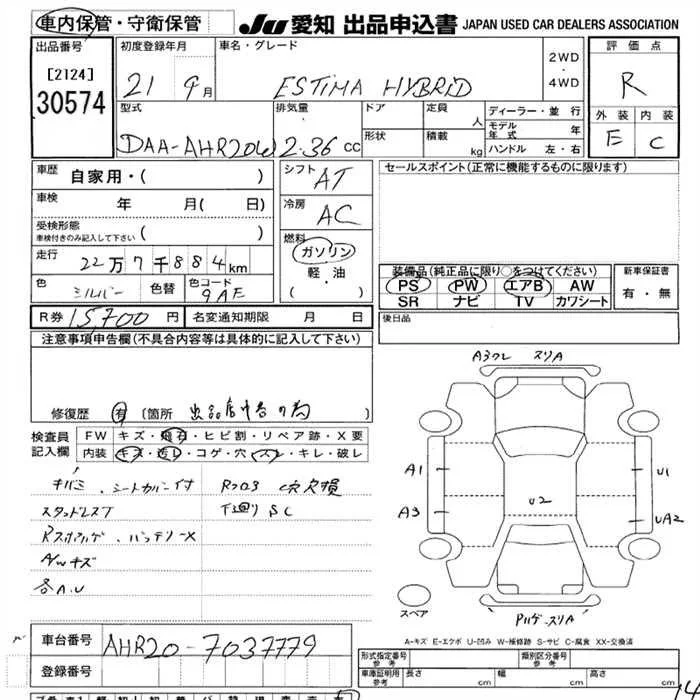 車内保管・守衛保管 JU 愛知 出品申込書 JAPAN USED CAR DEALERS ASSOCIATION
出品番号 初度登録年月 車名・グレード 2WD・4WD 評価点
[2124] 30574 21 9月 ESTIMA HYBRID R
型式 排気量 ドア 定員 人 ディーラー・並行 外装 内装
DAA-AHR20W 2.36 cc 形状 積載 kg モデル年式 年 E C
ハンドル 左・右
車歴 自家用・( ) シフト AT セールスポイント(正常に機能するものに限ります)
車検 年 月( 日) 冷房 AC
受検形態 車検付きのみ記入して下さい ( )
燃料 ガソリン 軽・油 ( )
走行 22万7千884km
装備品(純正品に限り○をつけてください) 新車保証書
色 シルバー 色替 色コード 9AE
PS PW エアB AW 有・無
SR ナビ TV カワシート
R券 15,700円 名変通知期限 月 日 後日品
注意事項申告欄(不具合内容等は具体的に記入して下さい)
修復歴 有 〔箇所
検査員記入欄 FW キズ・飛石・ヒビ割・リペア跡・X要
内装 キズ・汚レ・コゲ・穴・スレ・キレ・破レ
シートカバー付
スタッドレスT 下廻りSC
バッテリーX
A/Wキズ
各A.U
スリA
A1 U1
U2
A3 UA2
スペア
スリA
A-キズ E-エクボ U-凹み W-補修跡 S-サビ C-腐食 XX-交換済
車台番号 AHR20-7037779
登録番号
形式指定番号 参考 類別区分番号 参考
車庫証明用 参考 長さ cm 幅 cm 高さ cm